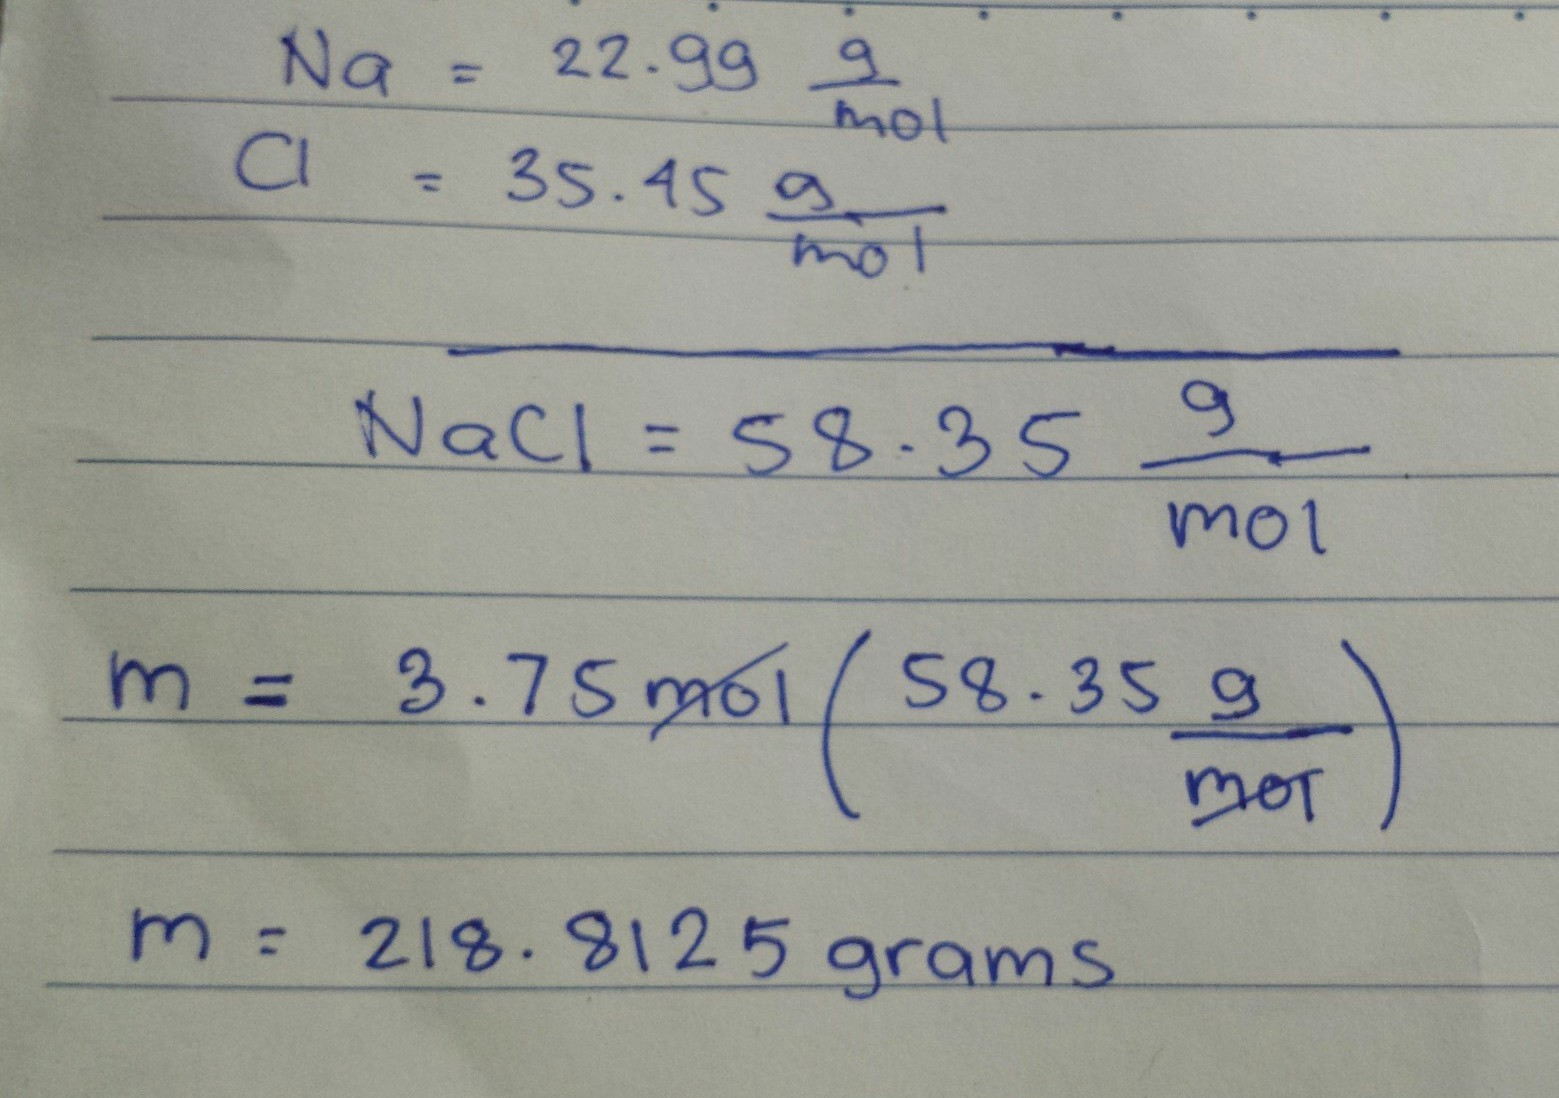 Na = 22.99 g/mol
Cl = 35.45 g/mol
NaCl = 58.35 g/mol
m = 3.75 mol (58.35 g/mol)
m = 218.8125 grams